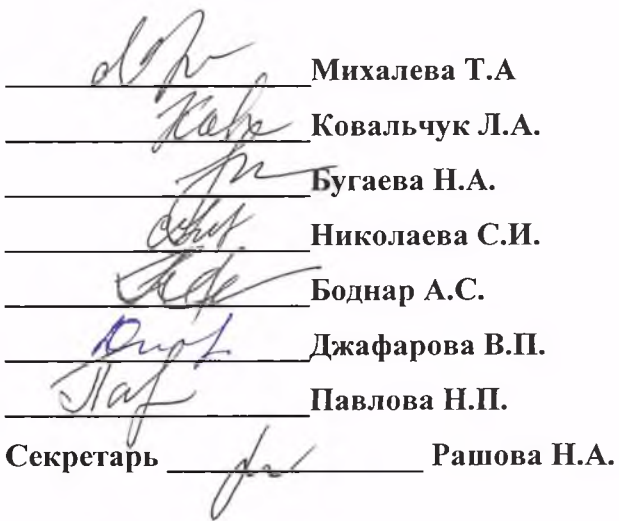 Михалева Т.А
Ковальчук Л.А.
Бугаева Н.А.
Николаева С.И.
Боднар А.С.
Джафарова В.П.
Павлова Н.П.
Секретарь Рашова Н.А.